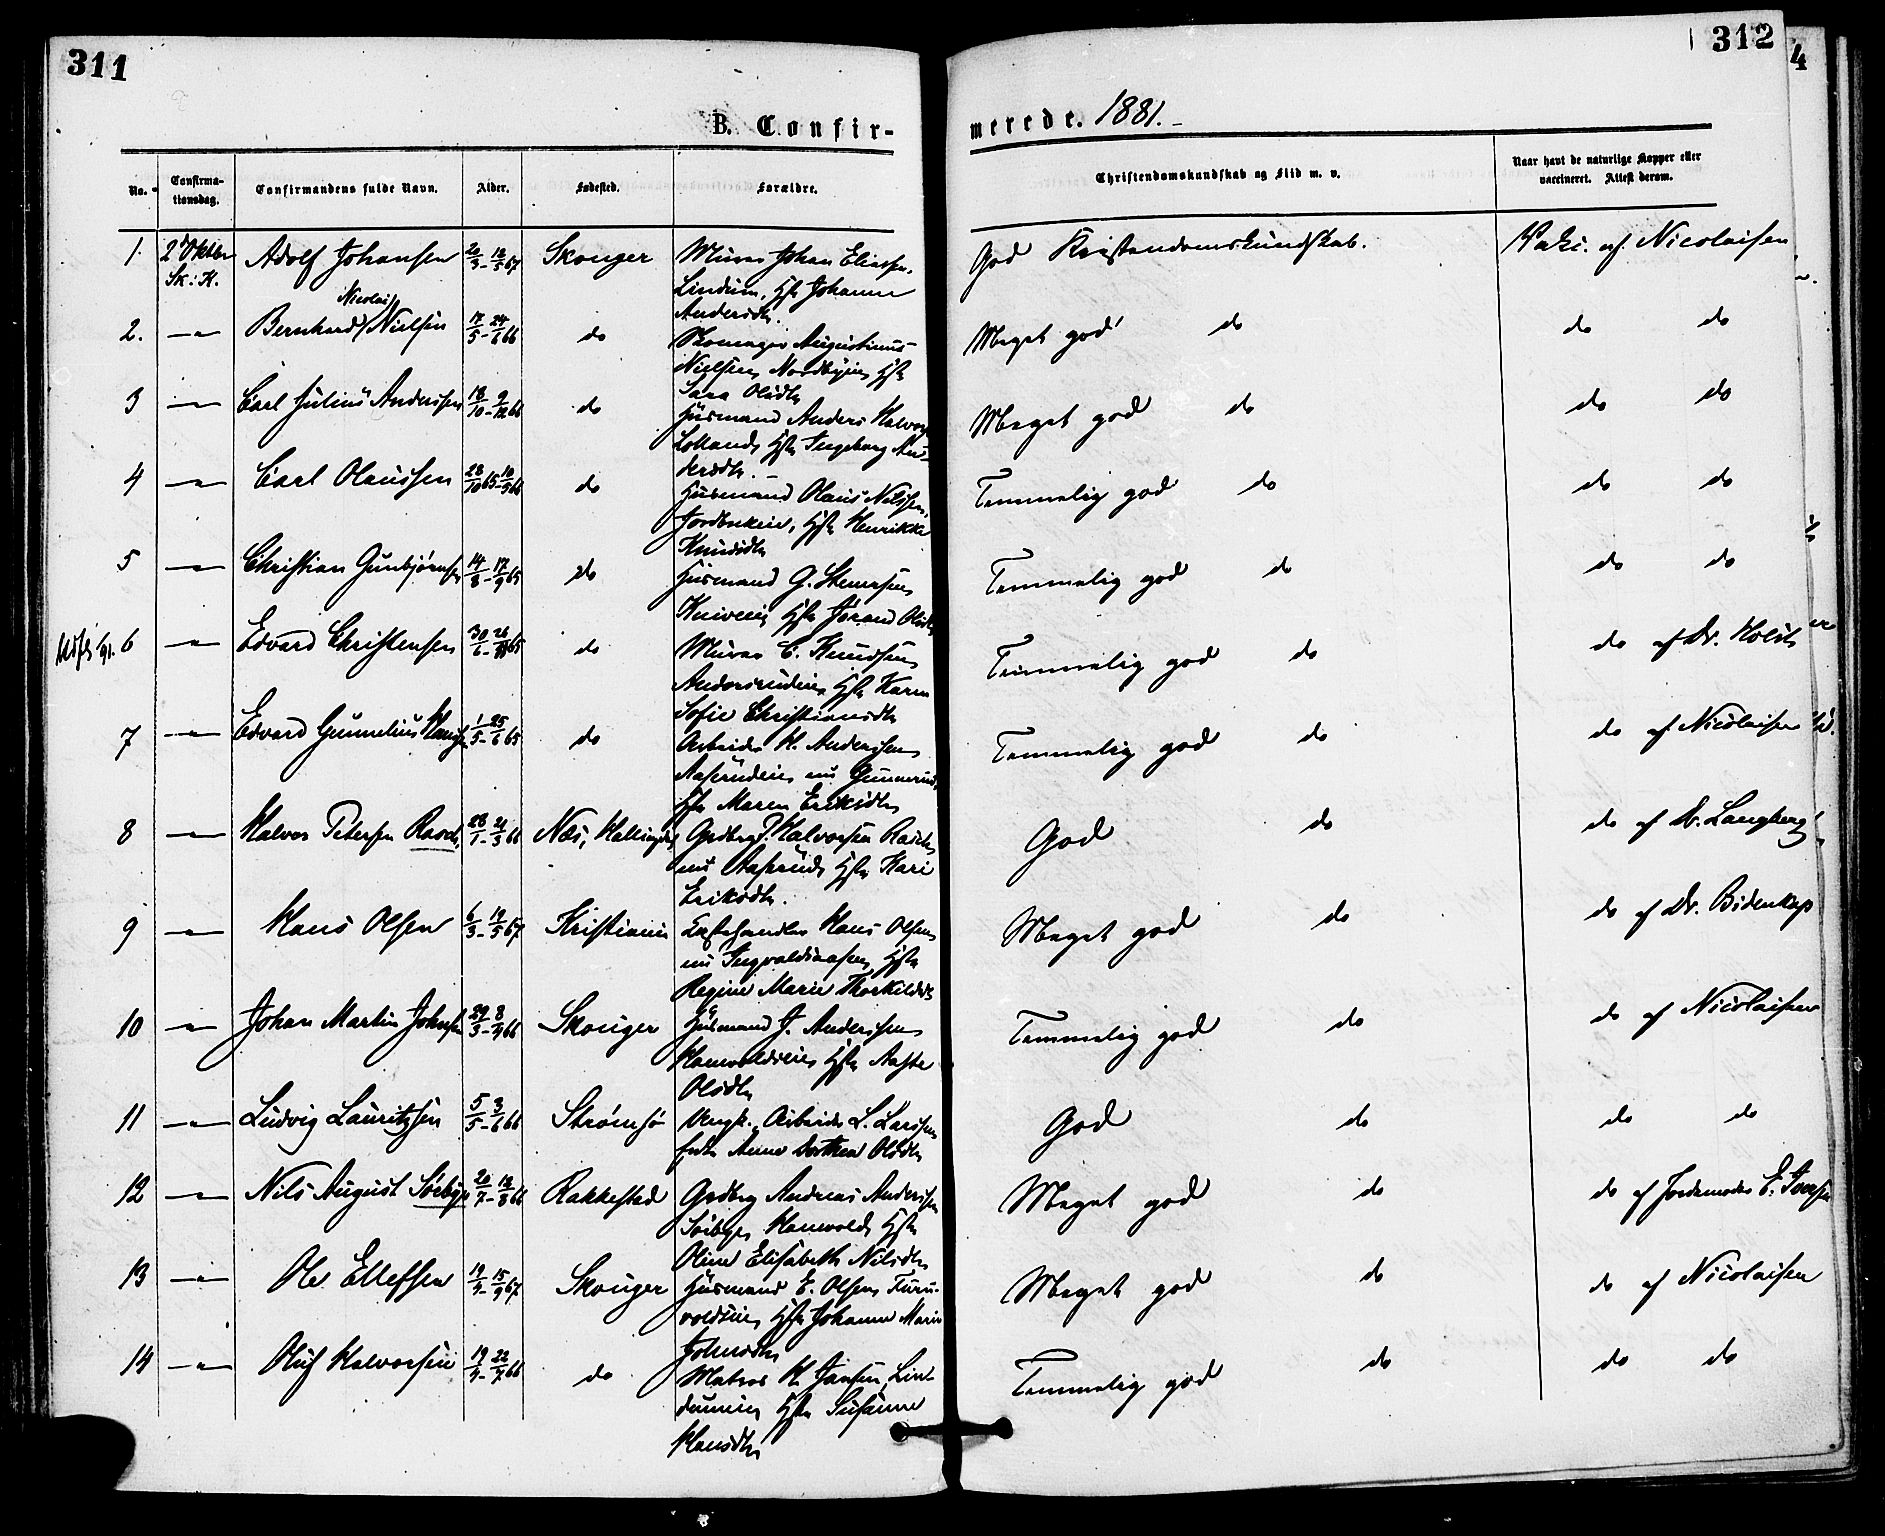 311
312
4
B. Confir-
merede. 1881.
No.
Confirma-
tionsdag.
Confirmandens fulde Navn.
Alder.
Fødested.
Forældre.
Christendomskundskab og Flid m. v.
Naar havt de naturlige Kopper eller
vaccineret. Attest derom.
1. 2 Oktbr Adolf Johansen 20/3 - 12/5 67 Skouger Murer Johan Eliassen,
Sk: K. Lindum, Hst Johanne
Andersdtr.
God Kristendomskundskab. Vakc. af Nicolaisen
2. -"- Bernhard Nicolai Nielsen 17/5 - 24/6 66 do Skomager Augustinus
Nielsen Nordbyeie Hst
Sara Olsdtr
Meget god do do do
3 -"- Carl Julius Anderssen 18/10 - 9/12 66 do Husmand Anders Halvors
Hst Ingeborg An-
dersdtr.
Meget god do do do
4 -"- Carl Olaussen 28/10 65 - 10/5 66 do Husmand Olaus Nilssen,
Hst Henrikke
Knudsdtr
Temmelig god do do do
5 -"- Christian Gunbjørnsen 14/8 - 17/9 65 do Husmand G.
Hst Jørand Olsdtr
Temmelig god do do do
6 -"- Edvard Christensen 30/6 - 65 do Murer C. Knudsen
Andorsrudeie, Hst Karen
Sofie Christiansdtr
Temmelig god do do af Dr. Holst
7 -"- Edvard Gunnelius Hansen 1/5 - 25/6 65 do Arbeider H. Anderssen
Aaserudeie, nu Gunnerud,
Hst Maren Eriksdtr
Temmelig god do do af Nicolaisen
8 -"- Halvor Petersen Rasch, 28/1 - 21/3 66 Næs, Hallingdal Grdbrg P. Halvorsen Rasch
nu Aaserud, Hst Kari
Eriksdtr.
God do do af Dr. Langberg
9 -"- Hans Olsen 6/3 - 19/5 67 Kristiania Læsthandler Hans Olsen
nu Ingvaldsaasen, Hst
Regine Marie Thorkildsd
Meget god do do af Dr. Bidenkap
10 -"- Johan Martin Johnsen 29/3 - 8/4 66 Skouger Husmand J. Anderssen
Hanevoldseie, Hst Aaste
Olsdtr
Temmelig god do do af Nicolaisen
11 -"- Ludvig Lauritzsen 5/5 - 3/6 66 Strømsø Ungk. Arbeider L. Larssen
Anne Dorthea Olsdtr
God do do do
12 -"- Nils August Søibye 20/7 - 12/8 66 Rakkestad Grdbrg Andreas Anderssen
Søibye, Hanevold, Hst
Oline Elisabeth Nilsdtr
Meget god do do af Jordemoder E. Iversen
13 -"- Ole Ellefsen 19/4 - 15/9 67 Skouger Husmand E. Olsen, Furu-
voldeie, Hst Johanne Marie
Johnsdtr
Meget god do do af Nicolaisen
14 -"- Oluf Halvorsen 19/4 - 22/7 66 do Matros H. Jansen, Lin-
dumeie, Hst Susanne
Hansdtr
Temmelig god do do do